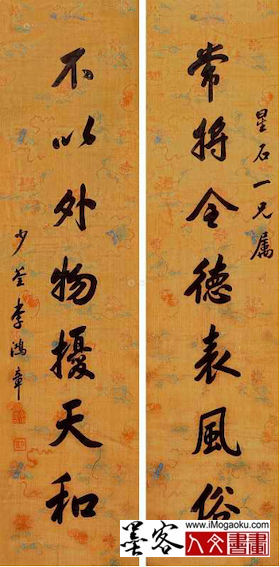 星石一兄属
常将全德表風俗
不以外物擾天和
少荃李鴻章
墨客
www.iMogaoku.com
人文書畫